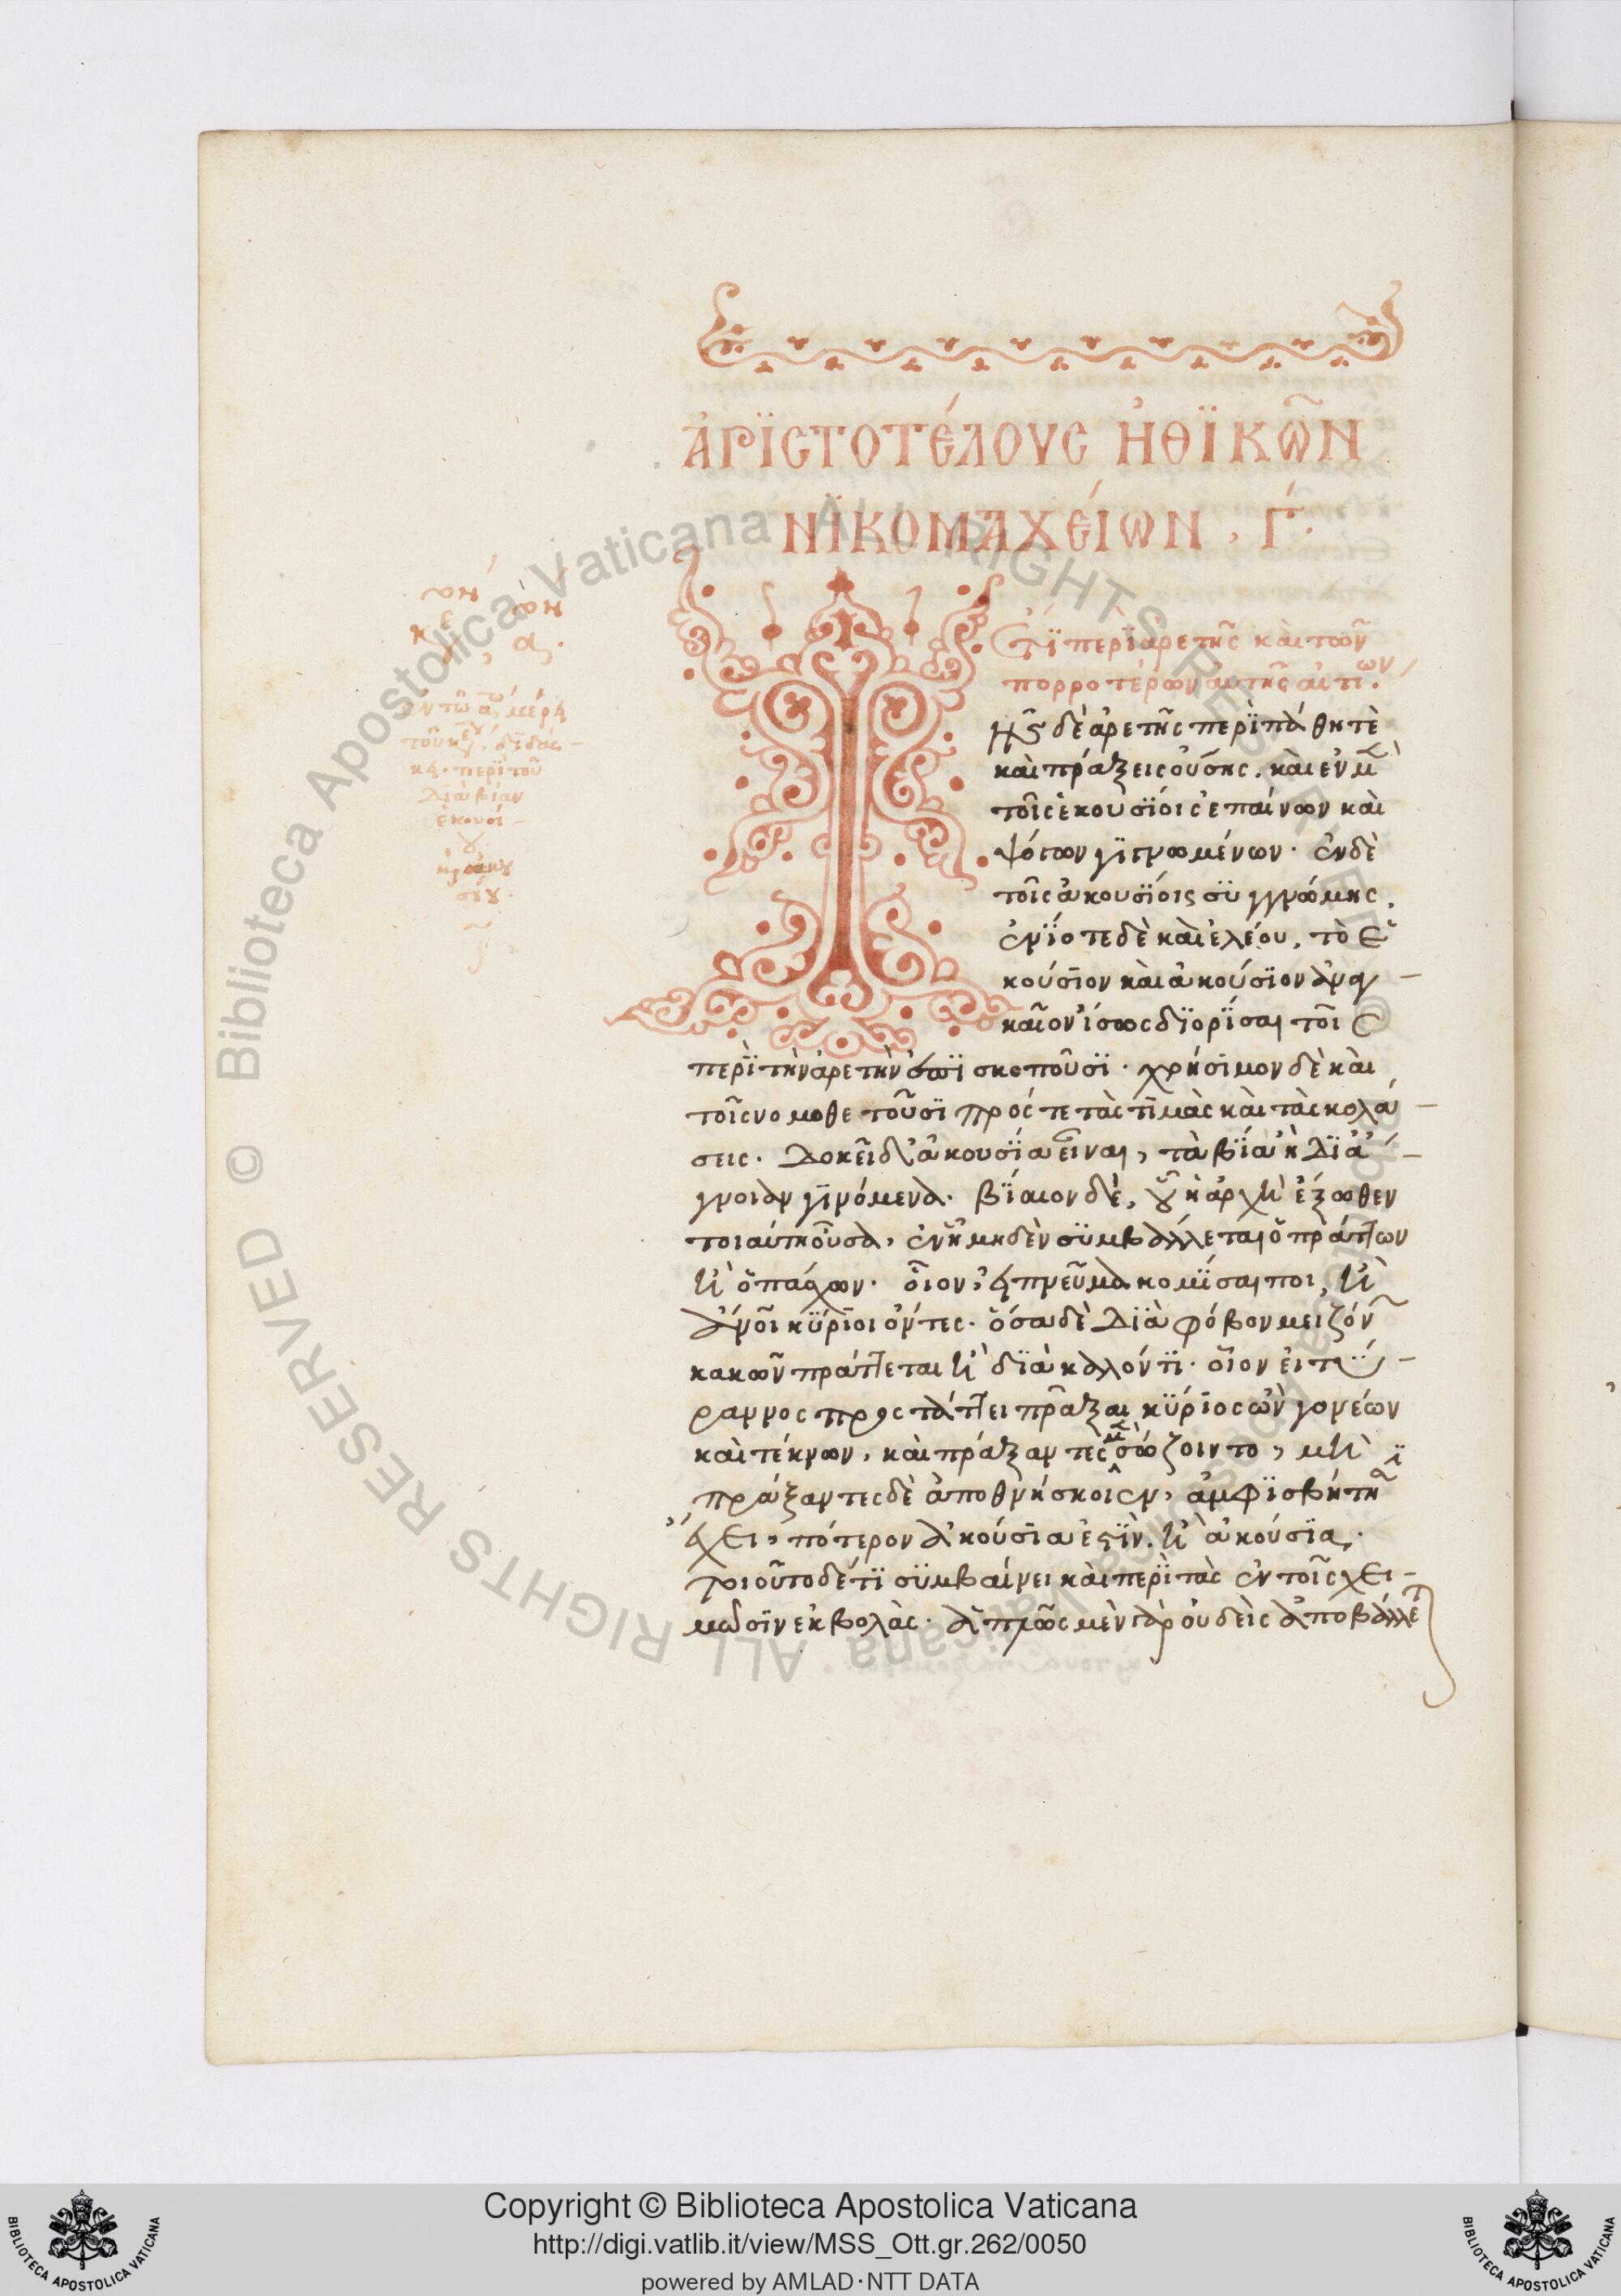 ἈΡΪΣΤΟΤΈΛΟΥΣ ἨΘΪΚΩ͂Ν
ΝΪΚΟΜΑΧΕΊΩΝ, Γ΄.
Ἔτϊ περὶ ἀρετῆς καὶ τῶν
πορροτέρων αὐτῆς αἰτίων.
Τῆς δὲ ἀρετῆς περὶ πάθη τὲ
καὶ πράξεις οὔσης. καὶ ἐν μὲν
τοῖς ἑκουσίοις ἐπαίνων καὶ
ψόγων γϊνομένων. ἐν δὲ
τοῖς ἀκουσίοις συγγνώμης,
ἐνίοτε δὲ καὶ ἐλέου, τὸ ἑ
κούσιον καὶ ἀκούσιον ἀναγ-
καῖον ἴσως διορίσαι τοῖς
περὶ τὴν ἀρετὴν ἐπισκοποῦσι. χρήσιμον δὲ καὶ
τοῖς νομοθετοῦσι πρός τε τὰς τιμὰς καὶ τὰς κολά-
σεις. Δοκεῖ δ' ἀκουσία εἶναι, τὰ βίᾳ ἢ δι' ἄ-
γνοιαν γινόμενα. βίαιον δὲ, οὗ ἡ ἀρχὴ ἔξωθεν
τοιαύτη οὖσα, ἐν ᾗ μηδὲν συμβάλλεται ὁ πράττων
ἢ ὁ πάσχων. οἷον, εἰ πνεῦμα κομίσαι ποι, ἢ
ἄνοι κύριοι ὄντες. ὅσα δὲ διὰ φόβον μειζόνων
κακῶν πράττεται ἢ διὰ καλόν τι. οἷον εἰ τύ-
ραννος προστάττει πρᾶξαι κύριος ὢν γονέων
καὶ τέκνων, καὶ πράξαντες μὲν σώζοιντο, μὴ
πράξαντες δὲ ἀποθνήσκοιεν, ἀμφισβήτη
ἔχει, πότερον ἀκούσια ἐστὶν. ἢ ἀκούσια.
τοιοῦτο δέ τι συμβαίνει καὶ περὶ τὰς ἐν τοῖς χει-
μῶσιν ἐκβολὰς. ἁπλῶς μὲν γὰρ οὐδεὶς ἀποβάλλε
Copyright © Biblioteca Apostolica Vaticana
http://digi.vatlib.it/view/MSS_Ott.gr.262/0050
powered by AMLAD·NTT DATA
BIBLIOTECA APOSTOLICA VATICANA
BIBLIOTECA APOSTOLICA VATICANA
© Biblioteca Apostolica Vaticana ALL RIGHTS RESERVED © Biblioteca Apostolica Vaticana ALL RIGHTS RESERVED